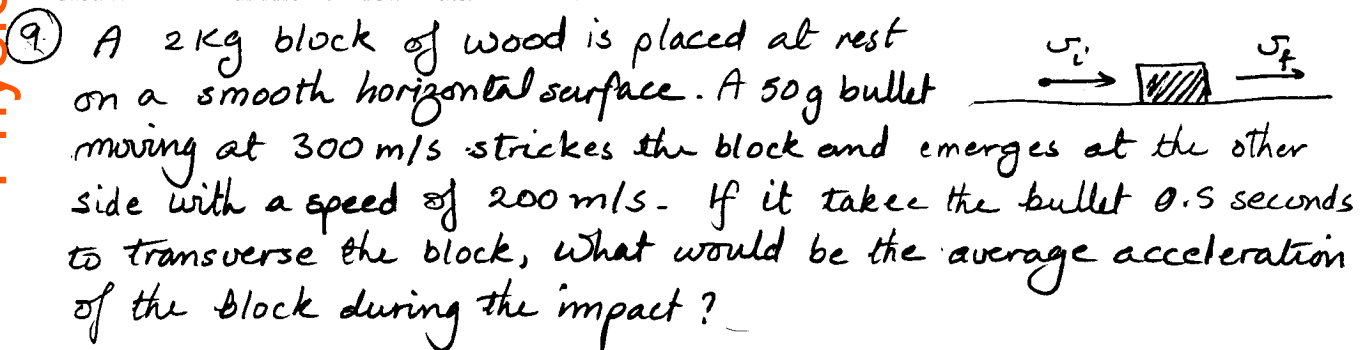 9. A 2 Kg block of wood is placed at rest
on a smooth horizontal surface. A 50g bullet
moving at 300 m/s strickes the block and emerges at the other
side with a speed of 200 m/s. If it takes the bullet 0.5 seconds
to transverse the block, what would be the average acceleration
of the block during the impact?
vi vf